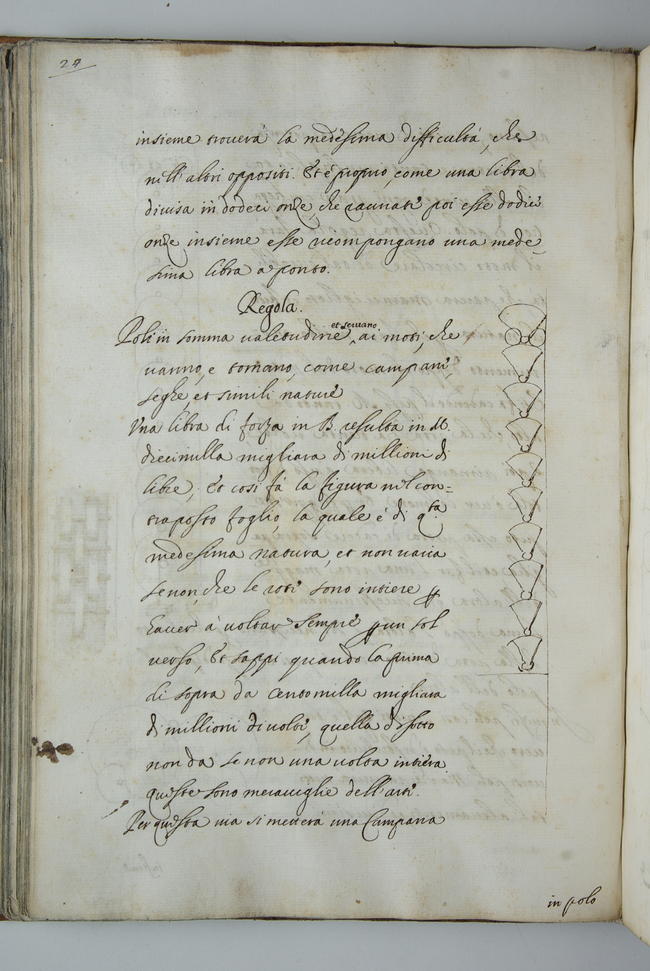 24
insieme trouerà la medesima difficultà, che
nell'altri oppositi. Et è proprio, come una libra
diuisa in dodeci onze, che raunati poi esse dodici
onze insieme esse ricompongano una mede-
sima libra aponto.
Regola.
Poli in somma ualetudine et seruano ai moti, che
uanno, e tornano, come campani,
seghe, et simili nature
Una libra di forza in B. resulta in M.
diecimilla migliara di millioni di
libre, Et cosi fà la figura nel con-
traposto foglio, la quale è di q.sta
medesima natura, et non uaria
se non, che le roti sono intiere p
hauer à uoltar sempre p un sol
uerso, Et sappi quando la prima
di sopra da centomilla migliara
di millioni di uolte, quella di sotto
non da se non una uolta intiera
queste sono merauiglie dell'arti.
Per questa uia si metterà una Campana
in polo